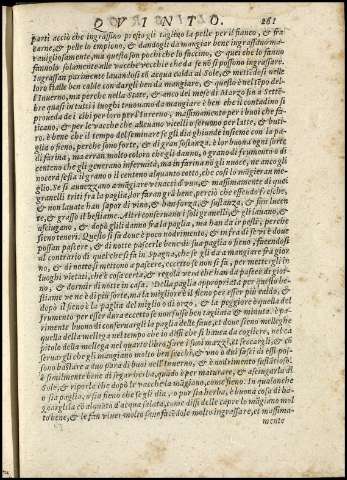 QVINTO. 261
parti acciò che ingrassino presto gli tagliano la pelle per il fianco, & fra
carne, & pelle lo empiono, & dandogli da mangiar bene ingrassano ma
rauigliosamente, ma questo son pochi che lo faccino, & quei che lo fanno
fannolo solamente alle vacche vecchie che da se nõ si possono ingrassare.
Ingrassan parimente lauandosi cõ acqua calda al Sole, & mettẽdosi nelle
loro stalle ben calde con dargli ben da mangiare, & questo è nel tẽpo del-
l'Inuerno, ma perche nella State, & anco dal mese di Marzo sin a Settẽ
bre quasi in tutti i luoghi trouano da mangiare è ben che il contadino si
proueda dei cibi per loro per l'Inuerno, massimamente per i buoi che fa-
ticano, & per le vacche che alleuano vitelli o seruono per latte, & buti-
ro. è bene che il tempo del seminar se gli dia ghiande insieme con la pa-
glia o fieno, perche sono forte, & di gran sostanza. è lor buona ogni sorte
di farina, ma erran molto coloro che gli danno, o grano di frumento o di
centeno che gli generano infermità, ma in farina nõ gli nuoce, me ancogli
nocerà se sia il grano o il centeno alquanto cotto, che cosi lo mãgieran me
glio. Se si auezzano a mãgiare vinacci d'vua, & massimamente di quei
granelli triti fra la paglia, lor faran grã bene, perciò che essendo fresche,
& non lauate han sapor di vino, & han forza, & sustanza, & sun lucen
te, & grasso il bestiame. Altri conseruano i soli granelli, & gli lauano, &
asciugano, & dopò gli li danno fra la paglia, ma han da ir pesti, perche
sieno teneri. Questo si fa doue è poco nodrimento, & in fra di se vi è doue
possan pascere, & di notte pascerle bene di sua paglia o fieno, facendosi
al contrario di quel che si fa in Spagna, che se gli da a mangiare fra gior
no, & di notte si mettono a pascere, eccetto se non si fa, per mettergli in
luoghi vietati, che è cosa certa, & regola vera che han da pascere di gior-
no, & dormir di notte in casa. Della paglia apropriata per questo be-
stiame ve ne è di più sorte, ma la migliore è il fieno per esser più caldo, &
dopò il fieno è la paglia del miglio o di orzo, & la peggiore è quella del
frumento per esser dura eccetto se non fusse ben tagliata & minuta. è pa-
rimente buono di conseruargli la paglia delle faue, et doue sieno melleghe
quella della mellega nel tempo che io dissi che si hanno da cogliere, nel ca
pitolo della mellega nel quarto libro fare i suoi mazzi, et seccargli, & cõ
seruargli che gli mangiano molto ben secchi, & vno o dui fasci di essi pos-
sono bastare a duo para di buoi nell'Inuerno, & è nodrimento sustãtioso.
è similmente bene di segar herba, quãdo è per maturare, & asciugarla al
Sole, & riporla che dopò le vacche la mãgiano, come fieno. In qualonche
o sia paglia, o sia fieno che se gli dia, o pur sia herba, è buona cosa di ba-
gnargli la cõ alquãto d'acqua salata, come dissi delle capre lo mãgiano mol
to bene, & le fan viuer molto sane facẽdole molto ingrassare, et massima-
mente